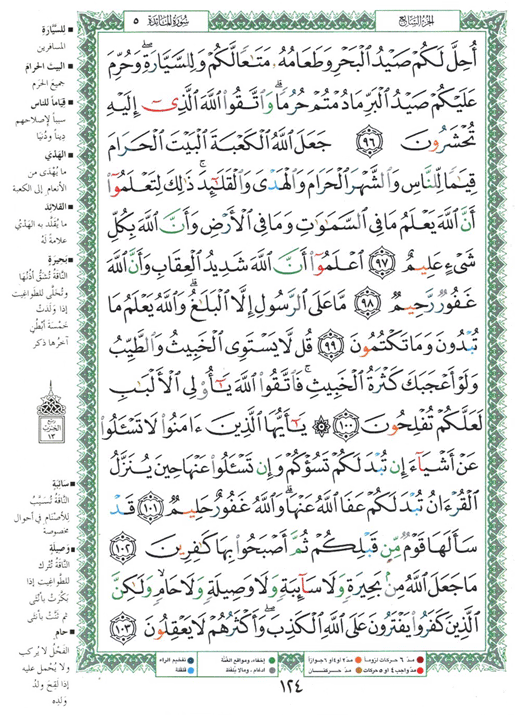 الجزء السابع
سورة المائدة ٥
أُحِلَّ لَكُمْ صَيْدُ ٱلْبَحْرِ وَطَعَامُهُۥ مَتَٰعًا لَّكُمْ وَلِلسَّيَّارَةِ ۖ وَحُرِّمَ
عَلَيْكُمْ صَيْدُ ٱلْبَرِّ مَا دُمْتُمْ حُرُمًا ۗ وَٱتَّقُوا۟ ٱللَّهَ ٱلَّذِىٓ إِلَيْهِ
تُحْشَرُونَ ٩٦ جَعَلَ ٱللَّهُ ٱلْكَعْبَةَ ٱلْبَيْتَ ٱلْحَرَامَ
قِيَٰمًا لِّلنَّاسِ وَٱلشَّهْرَ ٱلْحَرَامَ وَٱلْهَدْىَ وَٱلْقَلَٰٓئِدَ ۚ ذَٰلِكَ لِتَعْلَمُوٓا۟
أَنَّ ٱللَّهَ يَعْلَمُ مَا فِى ٱلسَّمَٰوَٰتِ وَمَا فِى ٱلْأَرْضِ وَأَنَّ ٱللَّهَ بِكُلِّ
شَىْءٍ عَلِيمٌ ٩٧ ٱعْلَمُوٓا۟ أَنَّ ٱللَّهَ شَدِيدُ ٱلْعِقَابِ وَأَنَّ ٱللَّهَ
غَفُورٌ رَّحِيمٌ ٩٨ مَّا عَلَى ٱلرَّسُولِ إِلَّا ٱلْبَلَٰغُ ۗ وَٱللَّهُ يَعْلَمُ مَا
تُبْدُونَ وَمَا تَكْتُمُونَ ٩٩ قُل لَّا يَسْتَوِى ٱلْخَبِيثُ وَٱلطَّيِّبُ
وَلَوْ أَعْجَبَكَ كَثْرَةُ ٱلْخَبِيثِ ۚ فَٱتَّقُوا۟ ٱللَّهَ يَٰٓأُو۟لِى ٱلْأَلْبَٰبِ
لَعَلَّكُمْ تُفْلِحُونَ ١٠٠ ۞ يَٰٓأَيُّهَا ٱلَّذِينَ ءَامَنُوا۟ لَا تَسْـَٔلُوا۟
عَنْ أَشْيَآءَ إِن تُبْدَ لَكُمْ تَسُؤْكُمْ وَإِن تَسْـَٔلُوا۟ عَنْهَا حِينَ يُنَزَّلُ
ٱلْقُرْءَانُ تُبْدَ لَكُمْ عَفَا ٱللَّهُ عَنْهَا ۗ وَٱللَّهُ غَفُورٌ حَلِيمٌ ١٠١ قَدْ
سَأَلَهَا قَوْمٌ مِّن قَبْلِكُمْ ثُمَّ أَصْبَحُوا۟ بِهَا كَٰفِرِينَ ١٠٢
مَا جَعَلَ ٱللَّهُ مِنۢ بَحِيرَةٍ وَلَا سَآئِبَةٍ وَلَا وَصِيلَةٍ وَلَا حَامٍ ۙ وَلَٰكِنَّ
ٱلَّذِينَ كَفَرُوا۟ يَفْتَرُونَ عَلَى ٱللَّهِ ٱلْكَذِبَ ۖ وَأَكْثَرُهُمْ لَا يَعْقِلُونَ ١٠٣
مدّ ٦ حركات لزوماً
مدّ ٢ أو ٤ أو ٦ جوازاً
إخفاء، ومواقع الغُنّة
تفخيم الراء
مدّ واجب ٤ أو ٥ حركات
مدّ حركتان
ادغام، ومالا يُلفَظ
قلقلة
١٢٤
للسَّيَّارَةِ
المسافرين
البيت الحرام
جميع الحرم
قِيَاماً للناس
سبباً لإصلاحهم
ديناً ودنيا
الهَدْي
ما يُهْدَى من
الأنعام إلى الكعبة
القلائد
ما يُقَلَّد به الهَدْيُ
علامةً لَهُ
بَحِيرَة
النَّاقَةُ تُشَقُّ أُذُنُها
وتُخَلَّى للطواغيت
إذا وَلَدَتْ
خَمْسَةَ أَبْطُنٍ
آخرُها ذكر
ربع
الحزب
١٣
سَائِبَة
النَّاقَةُ تُسَيَّبُ
للأصنام في أحوال
مخصوصة
وَصِيلَة
النَّاقَةُ تُتْرَكُ
للطواغيت إذا
بَكَّرَتْ بأنثى
ثم ثَنَّتْ بأنثى
حام
الفَحْلُ لا يُركب
ولا يُحْمَل عليه
إذا لقح ولدُ
وَلَدِه